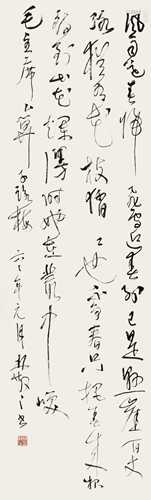 風雨送春归飛雪迎春到已是懸崖百丈
冰猶有花枝俏々也不争春只把春来报
待到山花爛漫時她在叢中咲
毛主席卜算子詠梅 年元月林散之书